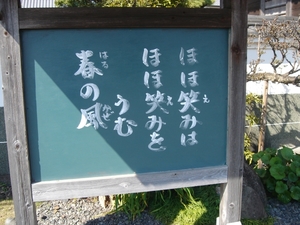 ほほ笑みは
ほほ笑みを
うむ
春の風